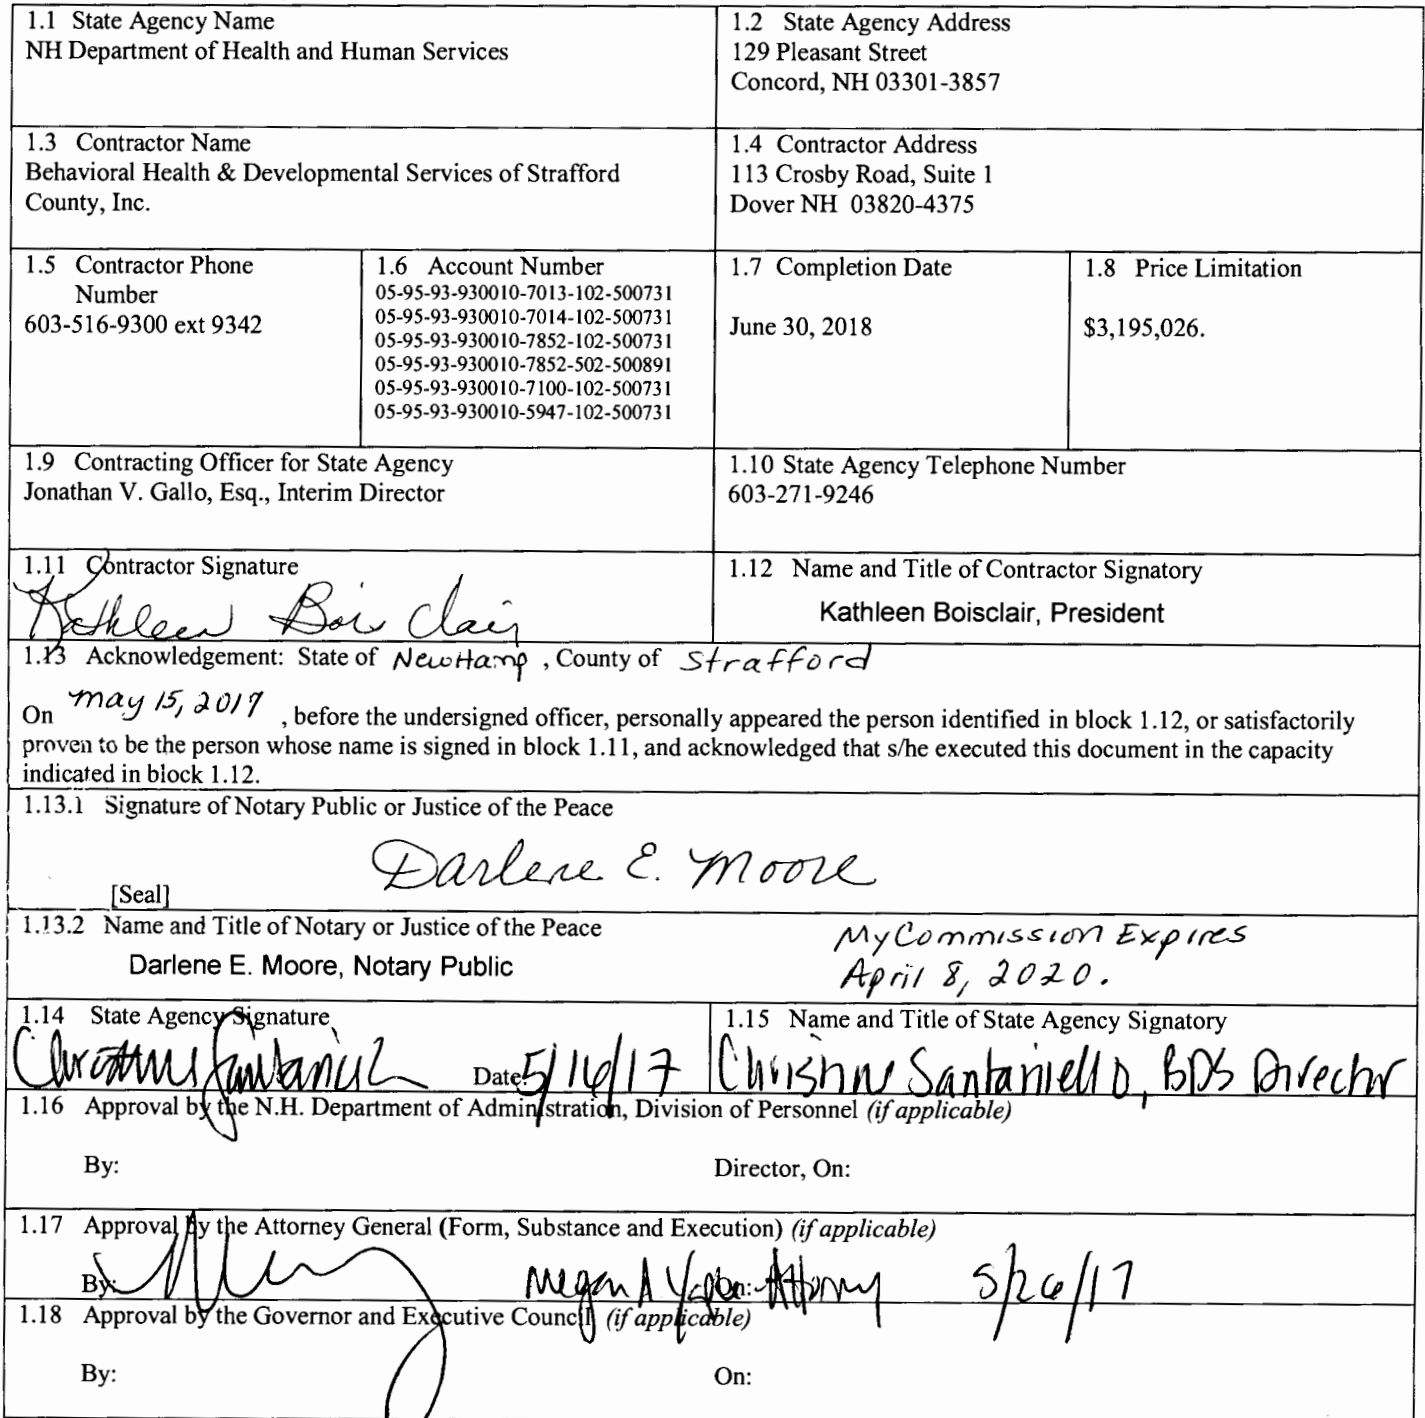 1.1 State Agency Name
NH Department of Health and Human Services
1.2 State Agency Address
129 Pleasant Street
Concord, NH 03301-3857
1.3 Contractor Name
Behavioral Health & Developmental Services of Strafford
County, Inc.
1.4 Contractor Address
113 Crosby Road, Suite 1
Dover NH 03820-4375
1.5 Contractor Phone
Number
603-516-9300 ext 9342
1.6 Account Number
05-95-93-930010-7013-102-500731
05-95-93-930010-7014-102-500731
05-95-93-930010-7852-102-500731
05-95-93-930010-7852-502-500891
05-95-93-930010-7100-102-500731
05-95-93-930010-5947-102-500731
1.7 Completion Date
June 30, 2018
1.8 Price Limitation
$3,195,026.
1.9 Contracting Officer for State Agency
Jonathan V. Gallo, Esq., Interim Director
1.10 State Agency Telephone Number
603-271-9246
1.11 Contractor Signature
Kathleen Boisclair
1.12 Name and Title of Contractor Signatory
Kathleen Boisclair, President
1.13 Acknowledgement: State of New Hamp, County of Strafford
On may 15, 2017, before the undersigned officer, personally appeared the person identified in block 1.12, or satisfactorily
proven to be the person whose name is signed in block 1.11, and acknowledged that s/he executed this document in the capacity
indicated in block 1.12.
1.13.1 Signature of Notary Public or Justice of the Peace
Darlene E. Moore
[Seal]
1.13.2 Name and Title of Notary or Justice of the Peace
Darlene E. Moore, Notary Public
My Commission Expires
April 8, 2020.
1.14 State Agency Signature
Date: 5/16/17
1.15 Name and Title of State Agency Signatory
Christine Santaniello, BDS Director
1.16 Approval by the N.H. Department of Administration, Division of Personnel (if applicable)
By:
Director, On:
1.17 Approval by the Attorney General (Form, Substance and Execution) (if applicable)
By: Megan A On: Attorney 5/26/17
1.18 Approval by the Governor and Executive Council (if applicable)
By:
On: